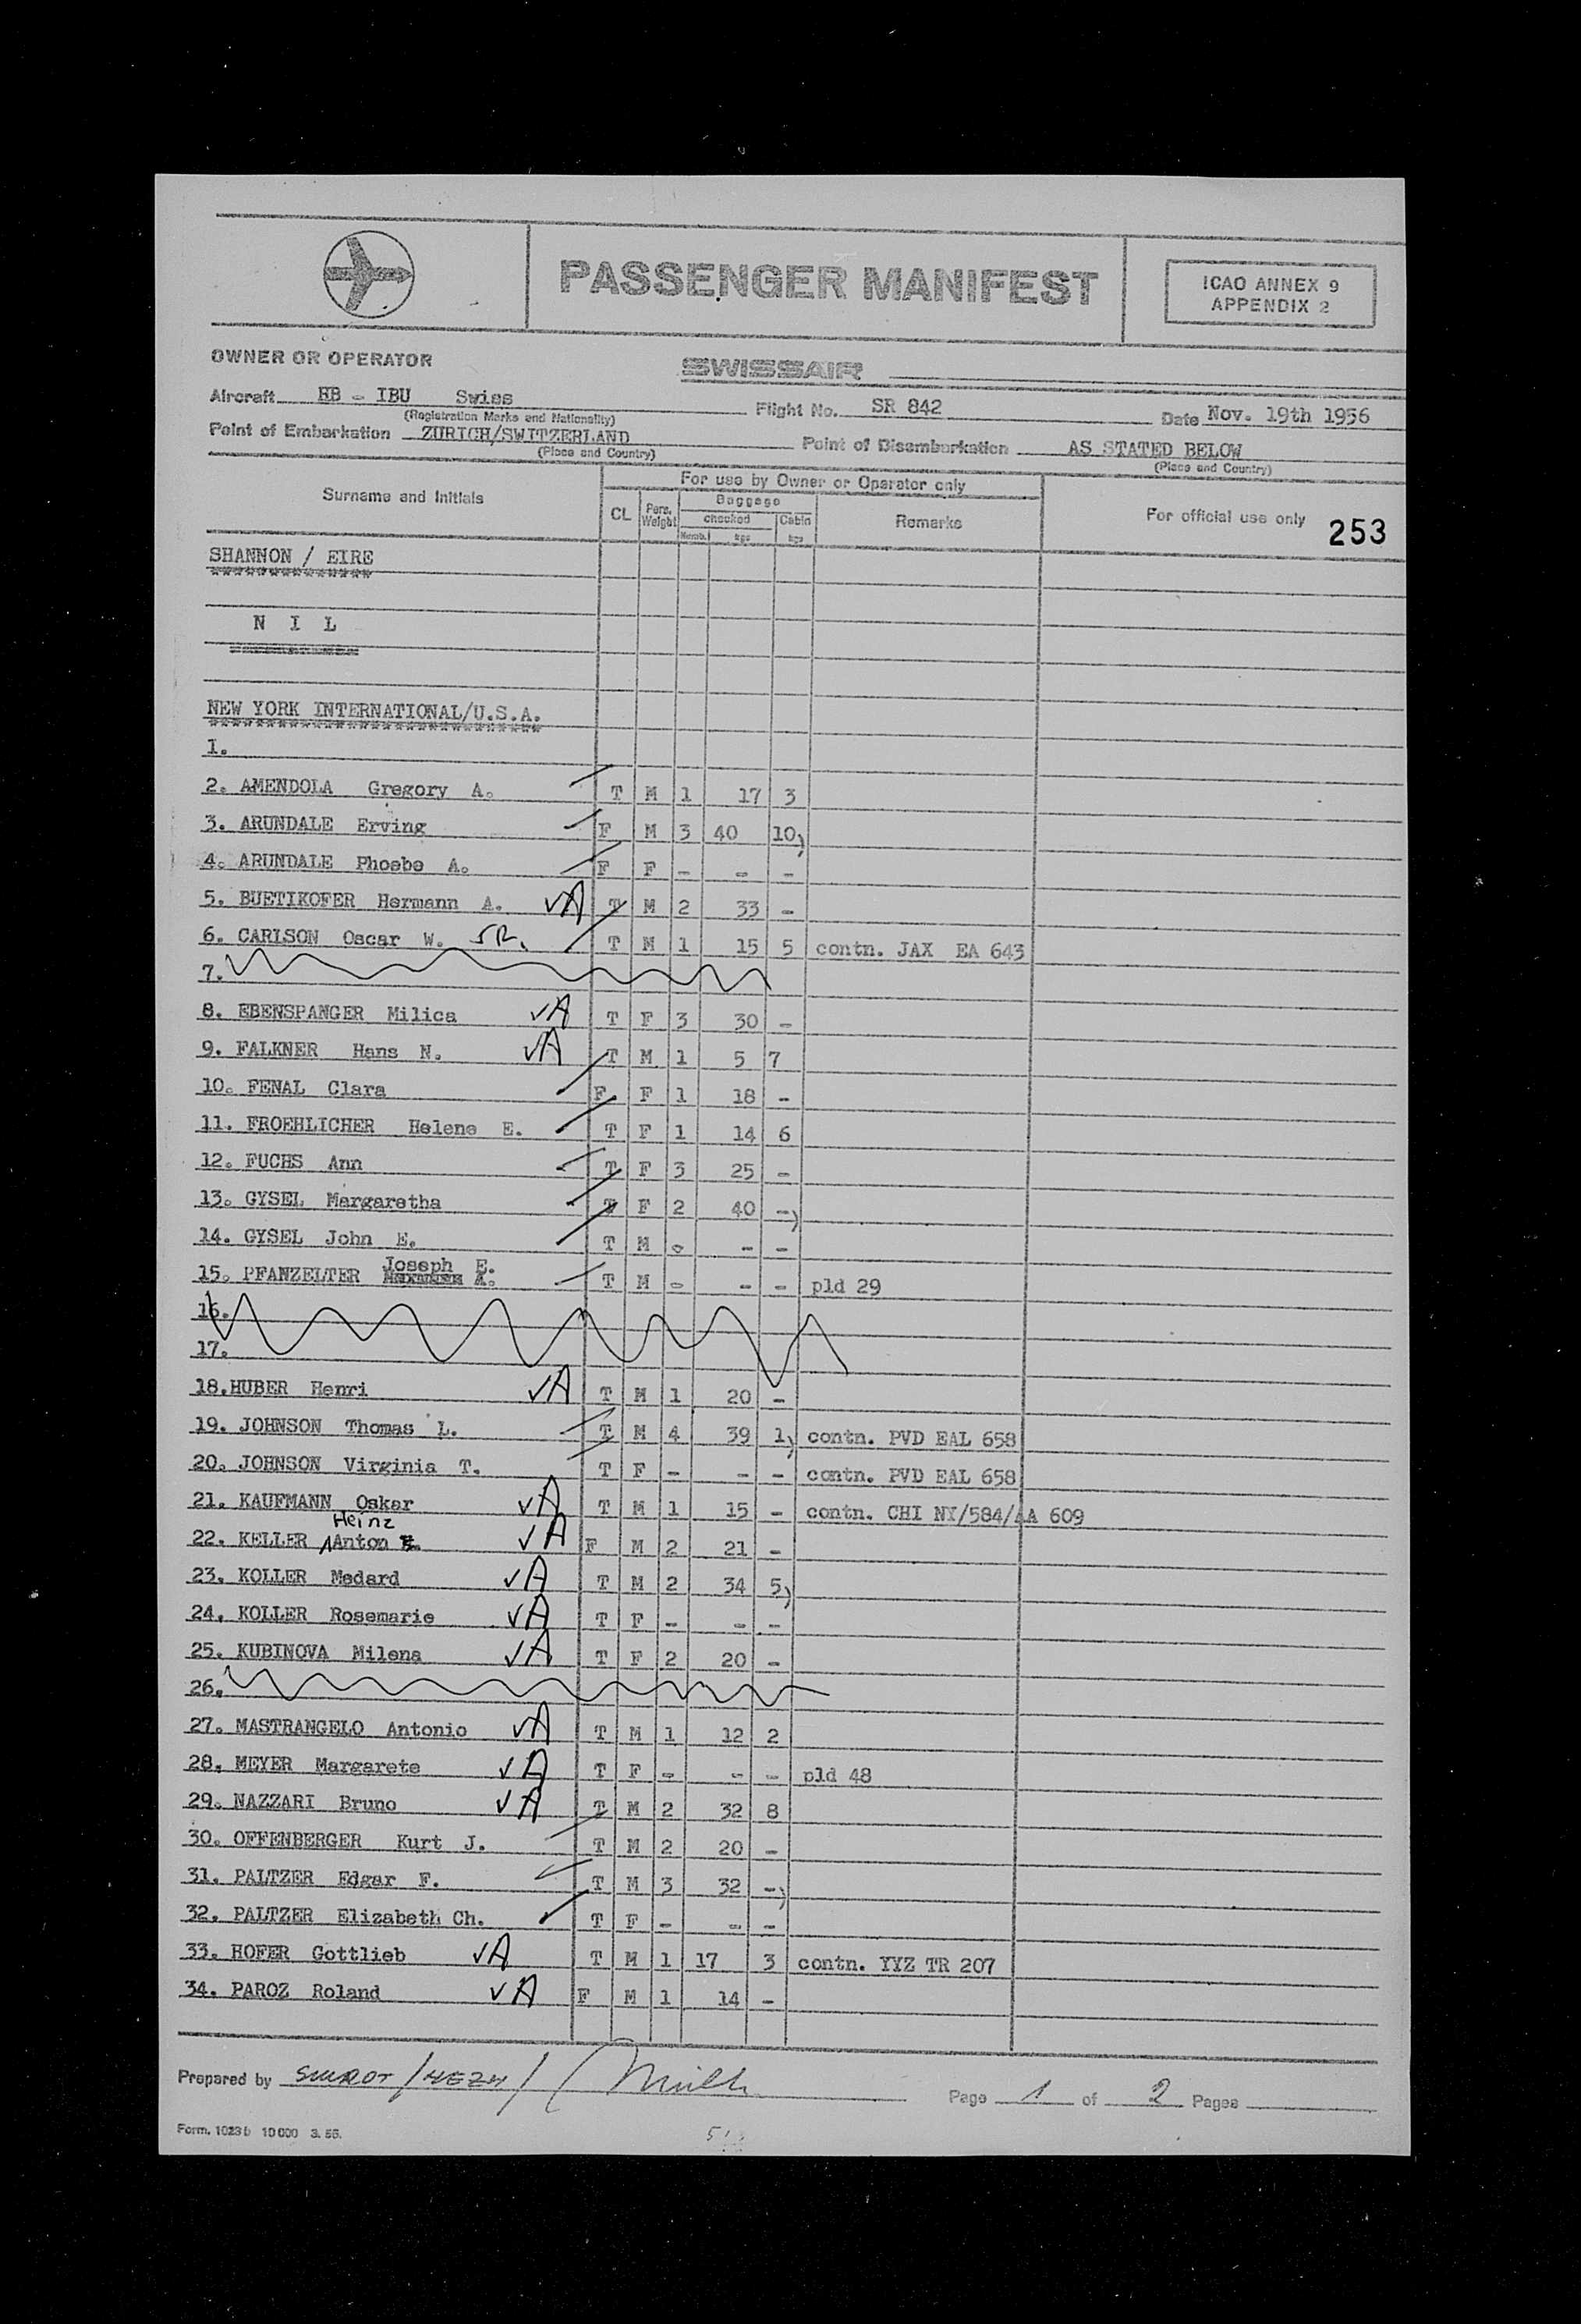 PASSENGER MANIFEST
ICAO ANNEX 9
APPENDIX 2
OWNER OR OPERATOR SWISSAIR
Aircraft HB - IBU Swiss Flight No. SR 842 Date Nov. 19th 1956
(Registration Marks and Nationality)
Point of Embarkation ZURICH/SWITZERLAND Point of Disembarkation AS STATED BELOW
(Place and Country) (Place and Country)
Surname and Initials For use by Owner or Operator only For official use only 253
CL Pers. Weight Baggage Remarks
checked Cabin
Numb. kgs kgs
SHANNON / EIRE
N I L
NEW YORK INTERNATIONAL/U.S.A.
1.
2. AMENDOLA Gregory A. T M 1 17 3
3. ARUNDALE Erving F M 3 40 10)
4. ARUNDALE Phoebe A. F F - - -
5. BUETIKOFER Hermann A. √A T M 2 33 -
6. CARLSON Oscar W. SR. T M 1 15 5 contn. JAX EA 643
7.
8. EBENSPANGER Milica √A T F 3 30 -
9. FALKNER Hans N. √A T M 1 5 7
10. FENAL Clara F F 1 18 -
11. FROEHLICHER Helene E. T F 1 14 6
12. FUCHS Ann T F 3 25 -
13. GYSEL Margaretha T F 2 40 -)
14. GYSEL John E. T M - - -
Joseph E.
15. PFANZELTER A. T M - - - pld 29
16.
17.
18.HUBER Henri √A T M 1 20 -
19. JOHNSON Thomas L. T M 4 39 1) contn. PVD EAL 658
20. JOHNSON Virginia T. T F - - - contn. PVD EAL 658
21. KAUFMANN Oskar √A T M 1 15 - contn. CHI NY/584/AA 609
Heinz
22. KELLER Anton √A F M 2 21 -
23. KOLLER Medard √A T M 2 34 5)
24. KOLLER Rosemarie √A T F - - -
25. KUBINOVA Milena √A T F 2 20 -
26.
27. MASTRANGELO Antonio √A T M 1 12 2
28. MEYER Margarete √A T F - - - pld 48
29. NAZZARI Bruno √A T M 2 32 8
30. OFFENBERGER Kurt J. T M 2 20 -
31. PALTZER Edgar F. T M 3 32 -)
32. PALTZER Elizabeth Ch. T F - - -
33. HOFER Gottlieb √A T M 1 17 3 contn. YYZ TR 207
34. PAROZ Roland √A F M 1 14 -
Prepared by Page 1 of 2 Pages
Form. 1023 b 10 000 3. 56.